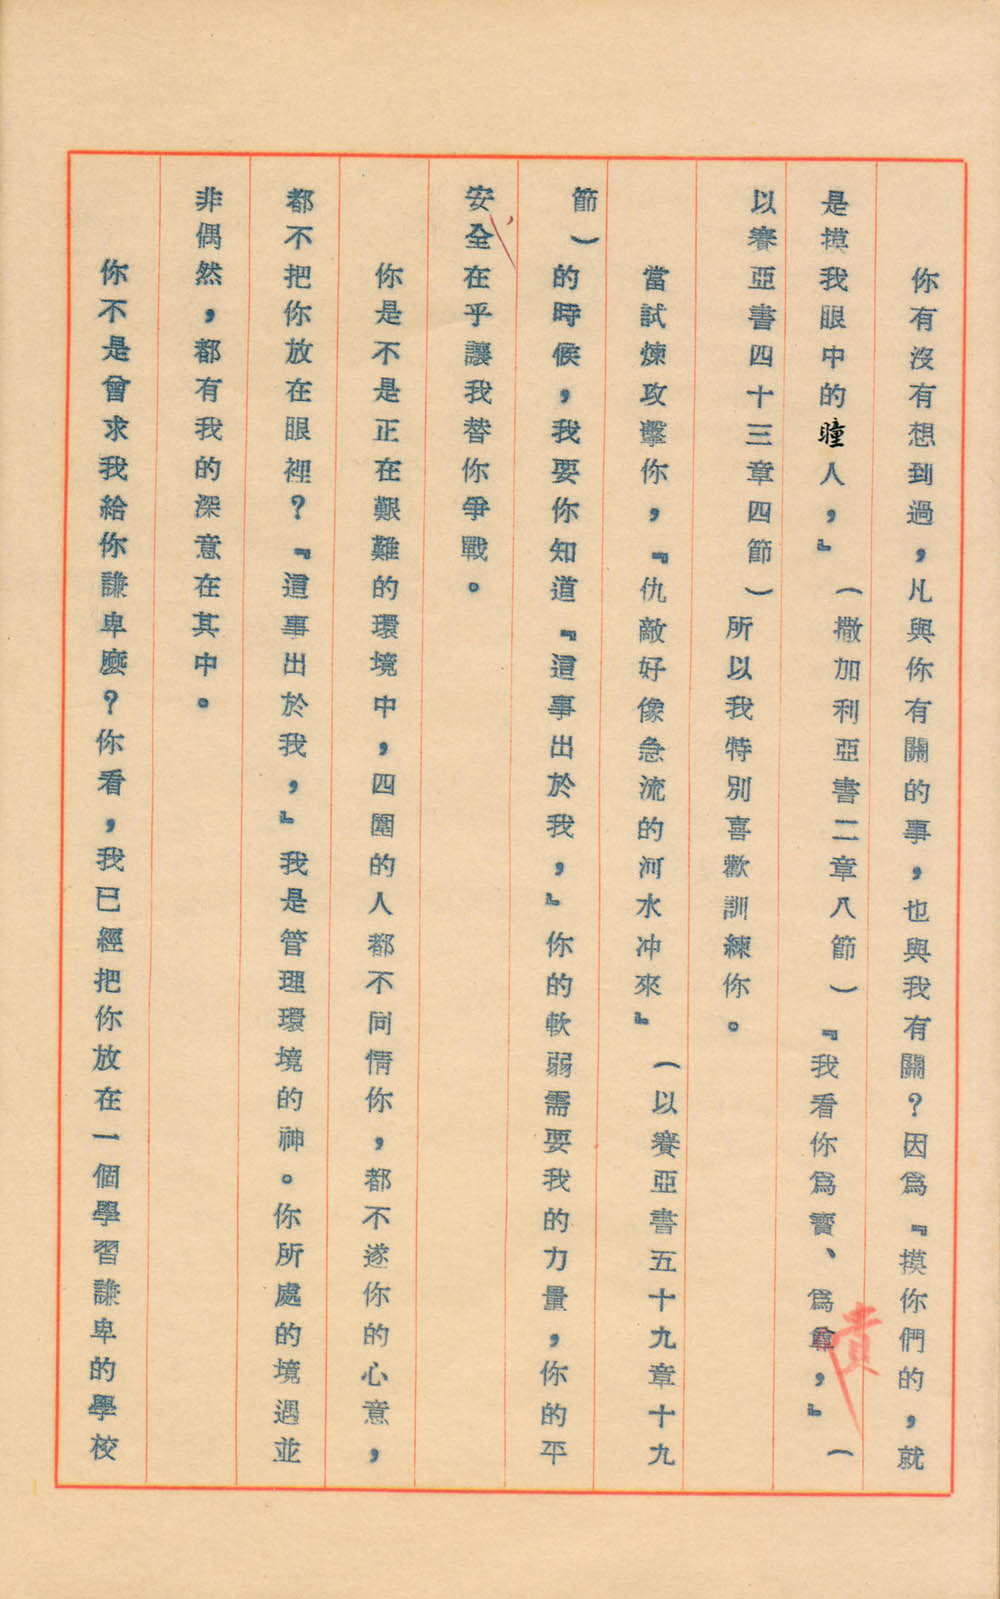 你有沒有想到過，凡與你有關的事，也與我有關？因爲『摸你們的，就
是摸我眼中的瞳人，』（撒加利亞書二章八節）『我看你爲寳、爲尊，』（
貴
以賽亞書四十三章四節）所以我特別喜歡訓練你。
當試煉攻擊你，『仇敵好像急流的河水冲來』（以賽亞書五十九章十九
節）的時候，我要你知道『這事出於我，』你的軟弱需要我的力量，你的平
安全在乎讓我替你爭戰。
你是不是正在艱難的環境中，四圍的人都不同情你，都不遂你的心意，
都不把你放在眼裡？『這事出於我，』我是管理環境的神。你所處的境遇並
非偶然，都有我的深意在其中。
你不是曾求我給你謙卑麼？你看，我已經把你放在一個學習謙卑的學校